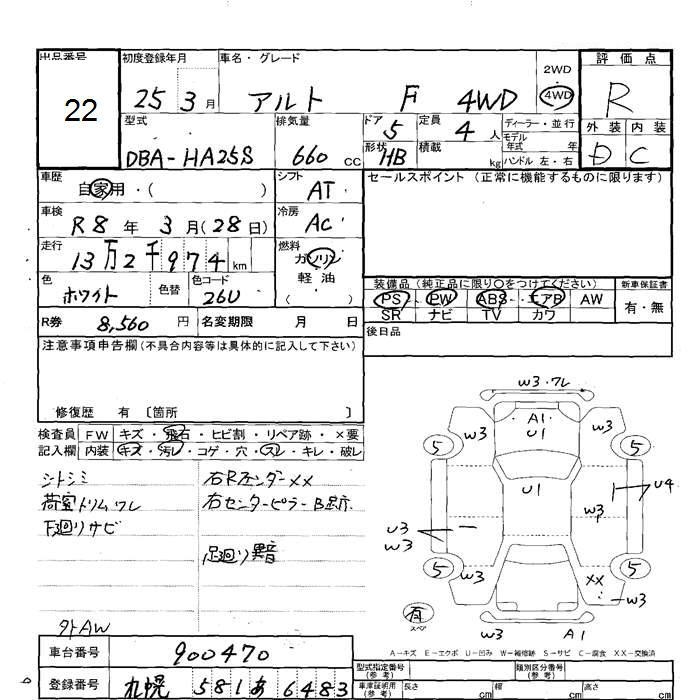 出品番号 22
初度登録年月 25 3月
車名・グレード アルト F 4WD
2WD 4WD
評価点 R
外装 内装
D C
型式 DBA-HA25S
排気量 660 CC
ドア 5
形状 HB
定員 4人
積載 kg
ディーラー・並行
モデル年式 年式
ハンドル 左・右
車歴 自家用・( )
シフト AT
車検 R8年 3月(28日)
冷房 AC
走行 13万2千974km
燃料 ガソリン 軽油 ( )
色 ホワイト
色替
色コード 26U
R券 8,560円
名変期限 月 日
セールスポイント(正常に機能するものに限ります)
装備品(純正品に限り○をつけてください) 新車保証書
PS PW ABS エアB AW 有・無
SR ナビ TV カワ
後日品
注意事項申告欄(不具合内容等は具体的に記入して下さい)
修復歴 有〔箇所 〕
検査員記入欄
FW キズ・飛石・ヒビ割・リペア跡・×要
内装 キズ・汚レ・コゲ・穴・スレ・キレ・破レ
シートシミ
荷室トリムワレ
下廻りサビ
右Rフェンダーxx
右センターピラーB跡
足廻り異音
外AW
W3・ワレ
A1
U1
W3 W3
5 5
U1
U4
W3
U3
W3
5 5
W3
XX
W3
有
スペア
W3 A1
A-キズ E-エクボ U-凹み W-補修跡 S-サビ C-腐食 XX-交換済
車台番号 900470
登録番号 札幌 581 あ 6483
型式指定番号(参考)
類別区分番号(参考)
車庫証明用(参考) 長さ cm 幅 cm 高さ cm